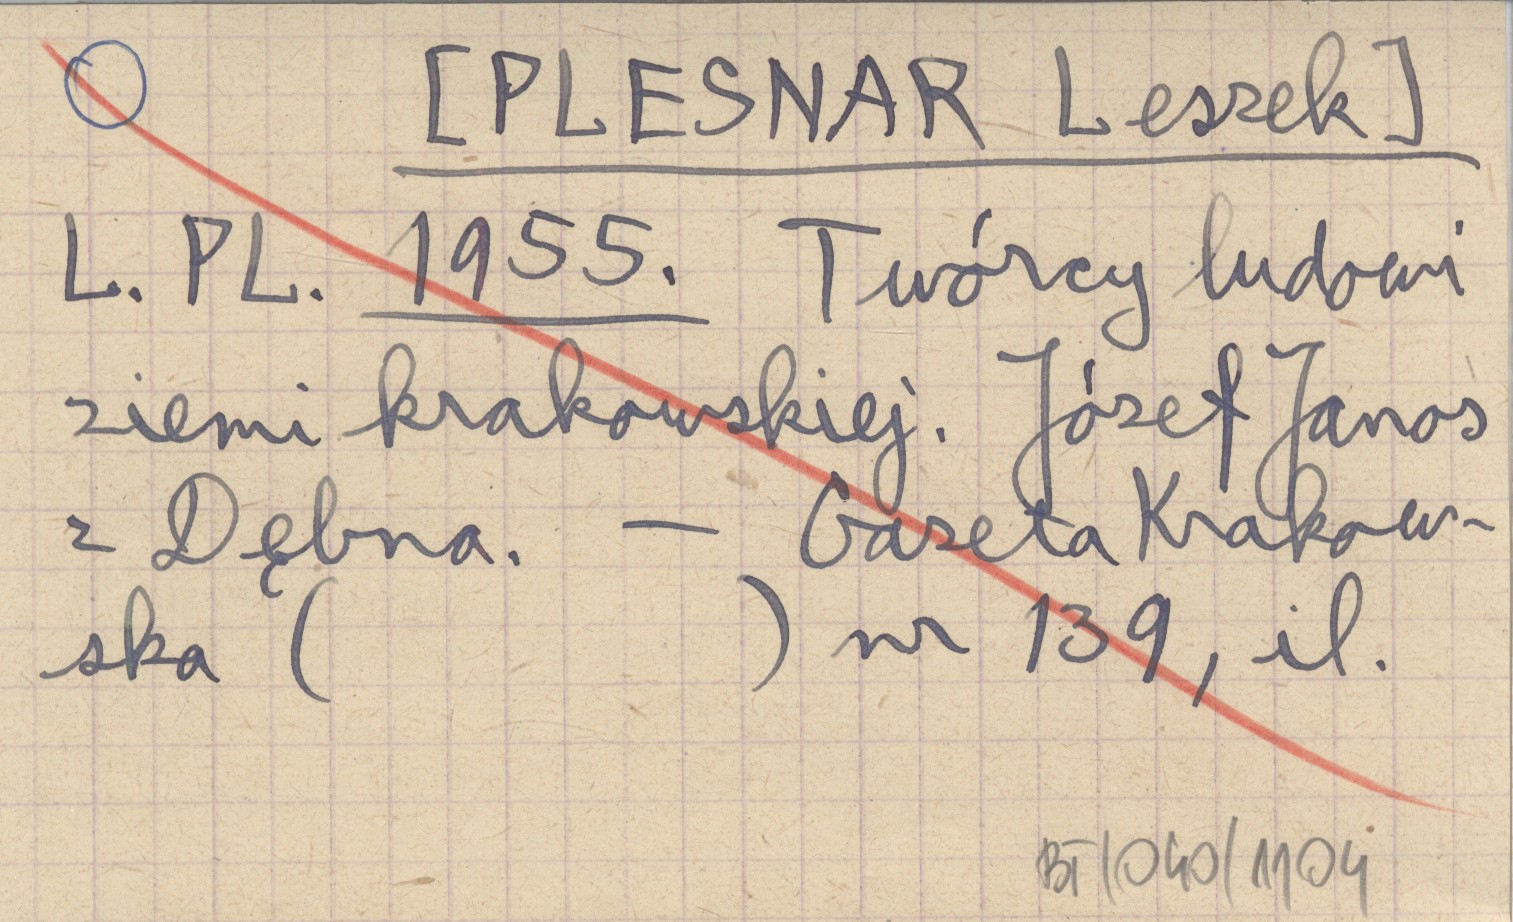 [PLESNAR Leszek]
L. PL. 1955. Twórcy ludowi
ziemi krakowskiej. Józef Janos
z Dębna. — Gazeta Krakow-
ska ( ) nr 139, il.
BT/040/1104